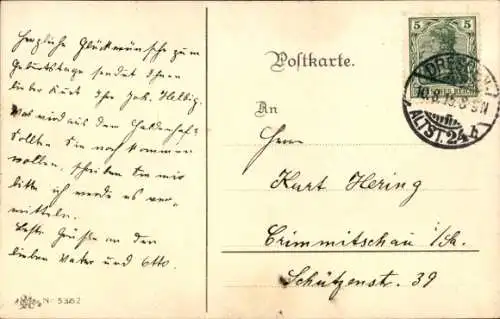 Herzliche Glückwünsche zum
Geburtstage sendet Ihnen
lieber Kurt Ihr Joh. Helbig.
Was wird aus dem
Sollten Sie noch kommen
wollen, schreiben Sie mir
bitte ich werde es ver-
mitteln.
Beste Grüße an den
lieben Vater und Otto.
Nr. 5382
Postkarte.
An
Herrn
Kurt Hering
Crimmitschau i/Sa.
Schützenstr. 39
5 5
DEUTSCHES REICH
DRESDEN
ALTST. 24 b